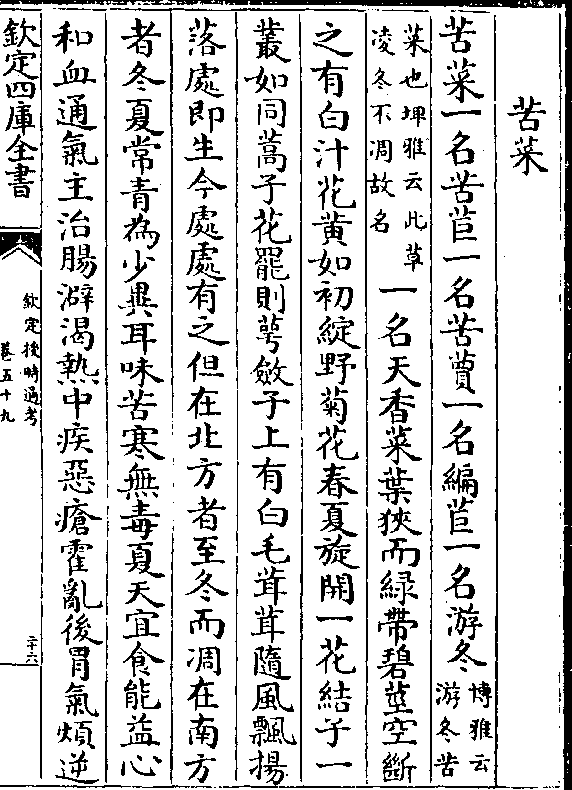 苦菜
苦菜一名苦苣一名苦蕒一名褊苣一名游冬博雅云游冬苦
菜也埤雅云此草凌冬不凋故名一名天香菜葉狹而綠帶碧莖空斷
之有白汁花黄如初綻野菊花春夏旋開一花結子一
叢如同蒿子花罷則萼斂子上有白毛茸茸隨風飄揚
落處即生今處處有之但在北方者至冬而凋在南方
者冬夏常青為少異耳味苦寒無毒夏天宜食能益心
和血通氣主治腸澼渴熱中疾惡瘡霍亂後胃氣煩逆
欽定四庫全書
欽定授時通考
卷五十九
二十六